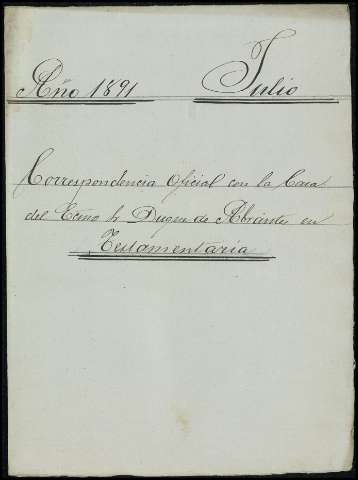 Año 1891 Julio
Correspondencia Oficial con la Casa
del Exmo Sr Duque de Abrantes en
Testamentaria